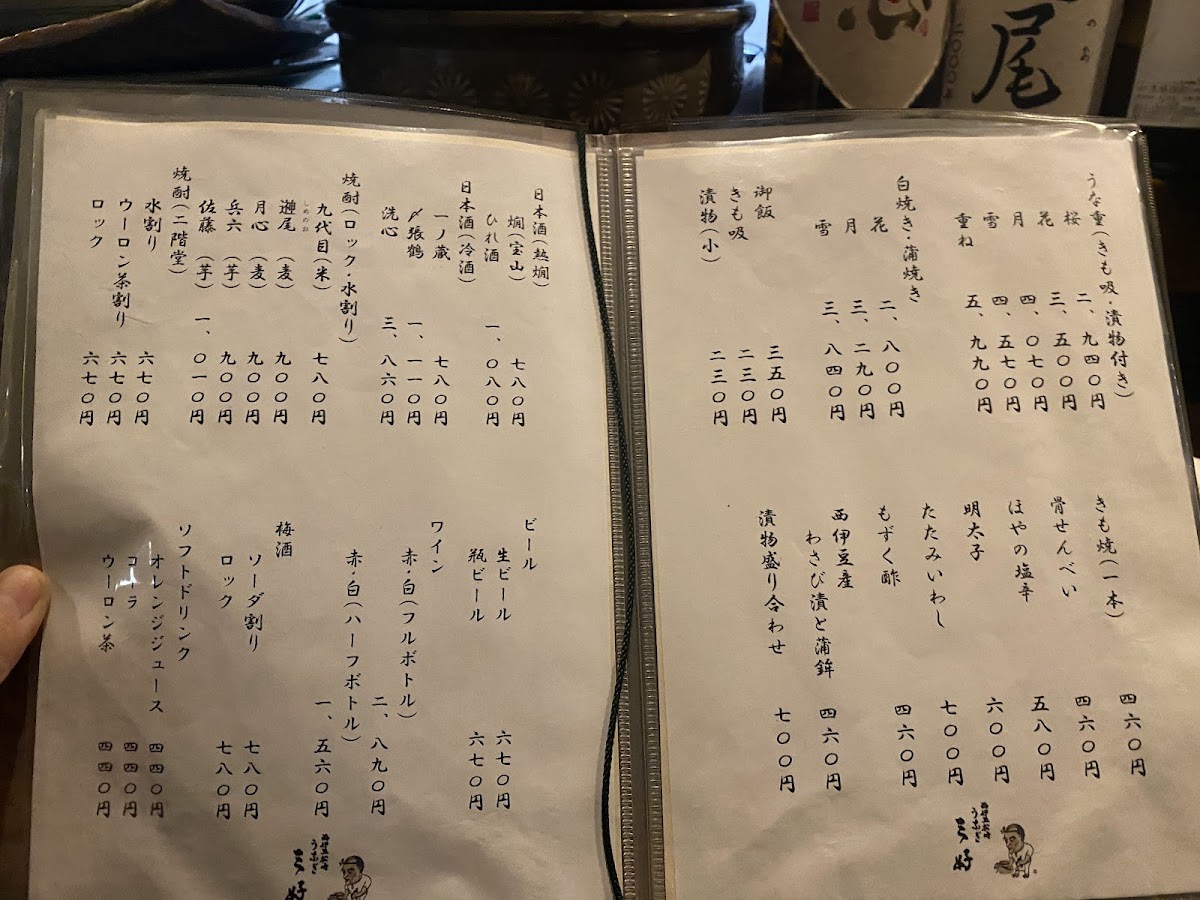 うな重(きも吸・漬物付き)
桜 二、九四〇円
花 三、五〇〇円
月 四、〇七〇円
雪 四、五七〇円
重ね 五、九九〇円
白焼き・蒲焼き
花 二、八〇〇円
月 三、二九〇円
雪 三、八四〇円
御飯 三五〇円
きも吸 二三〇円
漬物(小) 二三〇円
きも焼(一本) 四六〇円
骨せんべい 四六〇円
ほやの塩辛 五八〇円
明太子 六〇〇円
たたみいわし 七〇〇円
もずく酢 四六〇円
西伊豆産
わさび漬と蒲鉾 四六〇円
漬物盛り合わせ 七〇〇円
日本酒(熱燗)
燗(宝山) 七八〇円
ひれ酒 一、〇八〇円
日本酒(冷酒)
一ノ蔵 七八〇円
〆張鶴 一、一一〇円
洗心 三、八六〇円
焼酎(ロック・水割り)
九代目(米) 七八〇円
しめのお
尾(麦) 九〇〇円
月心(麦) 九〇〇円
兵六(芋) 九〇〇円
佐藤(芋) 一、〇一〇円
焼酎(二階堂)
水割り 六七〇円
ウーロン茶割り 六七〇円
ロック 六七〇円
ビール
生ビール 六七〇円
瓶ビール 六七〇円
ワイン
赤・白(フルボトル) 二、八九〇円
赤・白(ハーフボトル) 一、五六〇円
梅酒
ソーダ割り 七八〇円
ロック 七八〇円
ソフトドリンク
オレンジジュース 四四〇円
コーラ 四四〇円
ウーロン茶 四四〇円
尾